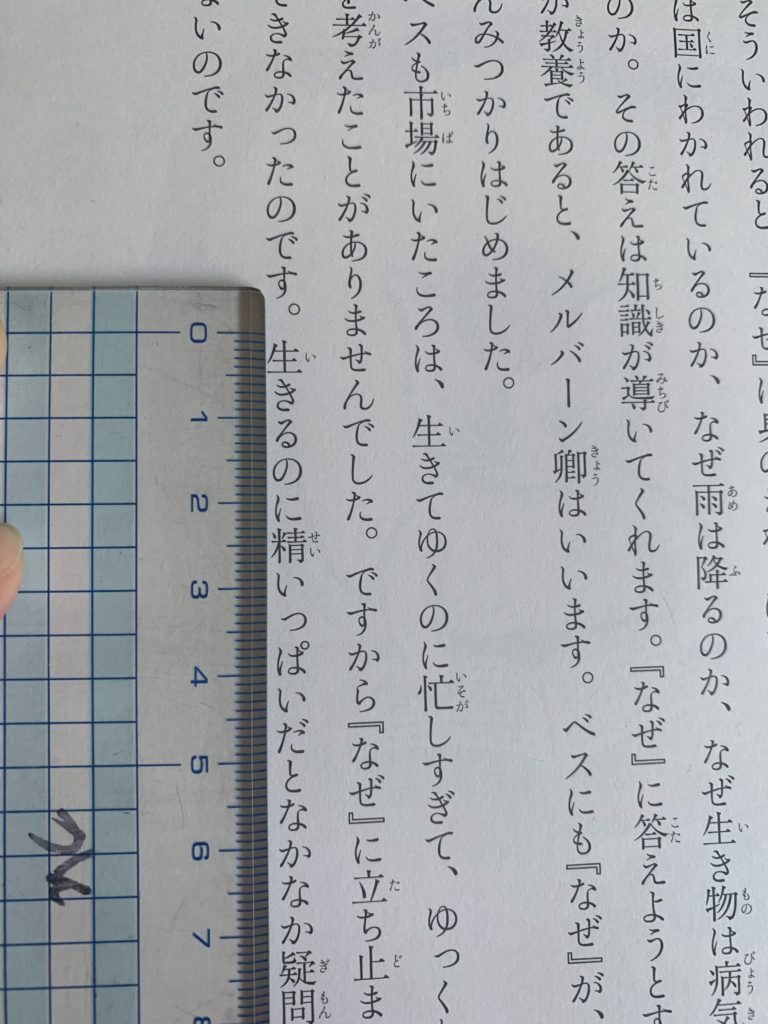 そういわれると、『なぜ』
は国にわかれているのか、なぜ雨は降るのか、なぜ生き物は病気
のか。その答えは知識が導いてくれます。『なぜ』に答えようとす
が教養であると、メルバーン卿はいいます。ベスにも『なぜ』が、
んみつかりはじめました。
ベスも市場にいたころは、生きてゆくのに忙しすぎて、ゆっく
を考えたことがありませんでした。ですから『なぜ』に立ち止ま
できなかったのです。生きるのに精いっぱいだとなかなか疑問
ないのです。
0
1
2
3
4
5
6
7
8